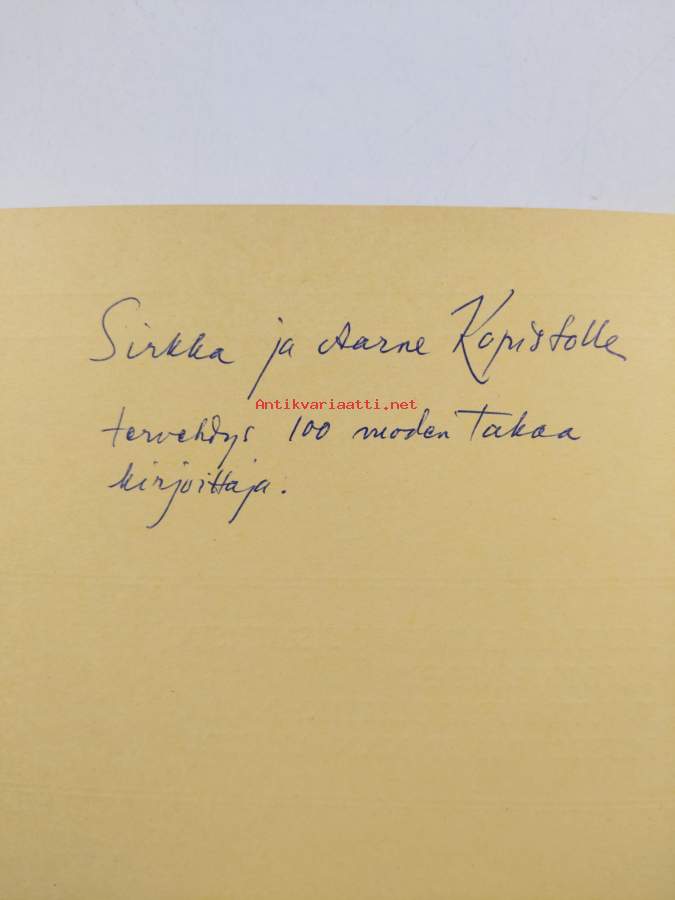 Sirkka ja Aarne Kopistolle
Antikvariaatti.net
tervehdys 100 vuoden Takaa
kirjoittaja.